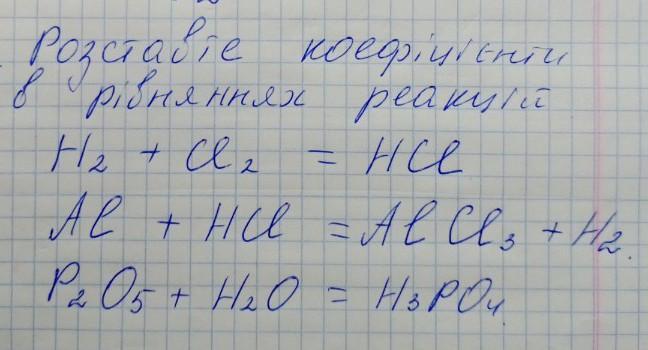 Розставте коефіцієнти
в рівняннях реакцій
H₂ + Cl₂ = HCl
Al + HCl = AlCl₃ + H₂.
P₂O₅ + H₂O = H₃PO₄.